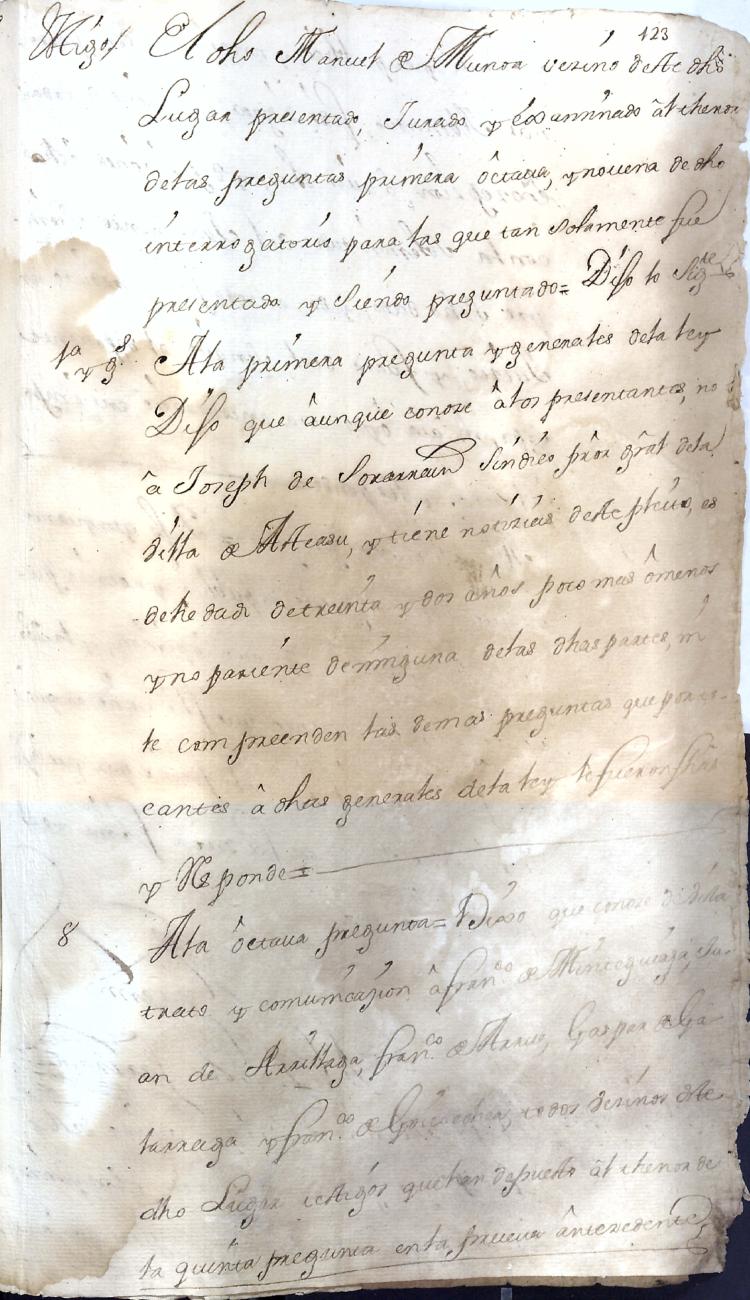 123
Ttigo El dho Manuel de Munoa vezino deste dho
Lugar presentado, Jurado y Examinado âl thenor
delas preguntas primera ôctaua, y nouena de dho
interrogatorio para las que tan Solamente fue
presentado y Siendo preguntado= Dijo lo Sigte
1a y gs Ala primera pregunta y generales dela ley
Dijo que âunque conoze âlos presentantes, no
â Joseph de Sorarrain Síndico prôr grâl dela
villa de Asteasu, y tiene noticias deste pleito, es
de hedad de treinta y dos años poco mas ômenos
y no pariente de ninguna delas dhas partes, ni
le compreenden las demas preguntas que por to-
cantes â dhas generales dela ley le fueron fhas
y Responde=
8 Ala ôctaua pregunta= Dixo que conoze de vista
trato y comunicazion â franco de Minteguiaga, Ju-
an de Arrillaga, franco de Arrue, Gaspar de Ga-
larraga y franco de Goicoechea, todos vezinos deste
dho Lugar testigos que han depuesto âl thenor de
la quinta pregunta en la prueua ântezedente,